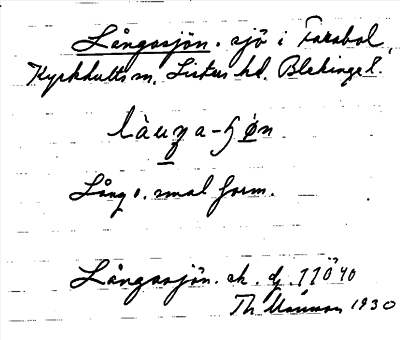 Långasjön. sjö i Farabol,
Kyrkhults sn, Listers hd. Blekinge l.
làŋa-ʃøn
Lång o. smal form.
Långasjön. ek. bl. 11Ö40
Th Mårman 1930